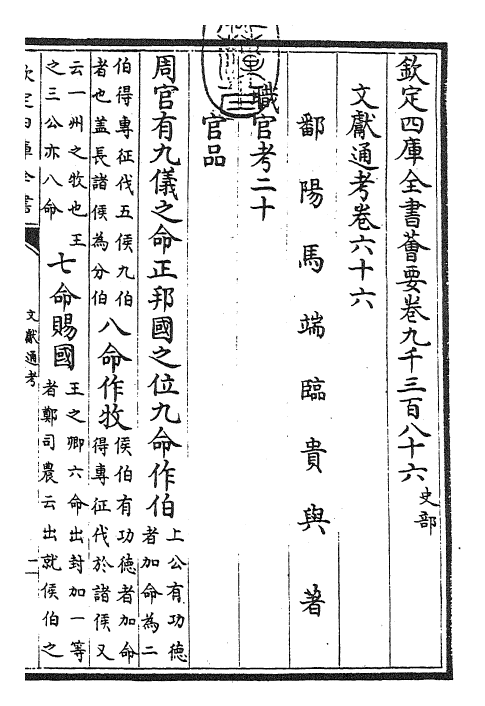 欽定四庫全書薈要卷九千三百八十六 史部
文獻通考卷六十六
鄱陽馬端臨貴與著
職官考二十
官品
周官有九儀之命正邦國之位九命作伯 上公有功德者加命為二
伯得專征伐五侯九伯者也蓋長諸侯為分伯 八命作牧 侯伯有功德者加命得專征伐於諸侯又
云一州之牧也王之三公亦八命 七命賜國 王之卿六命出封加一等者鄭司農云出就侯伯之
欽定四庫全書
文獻通考